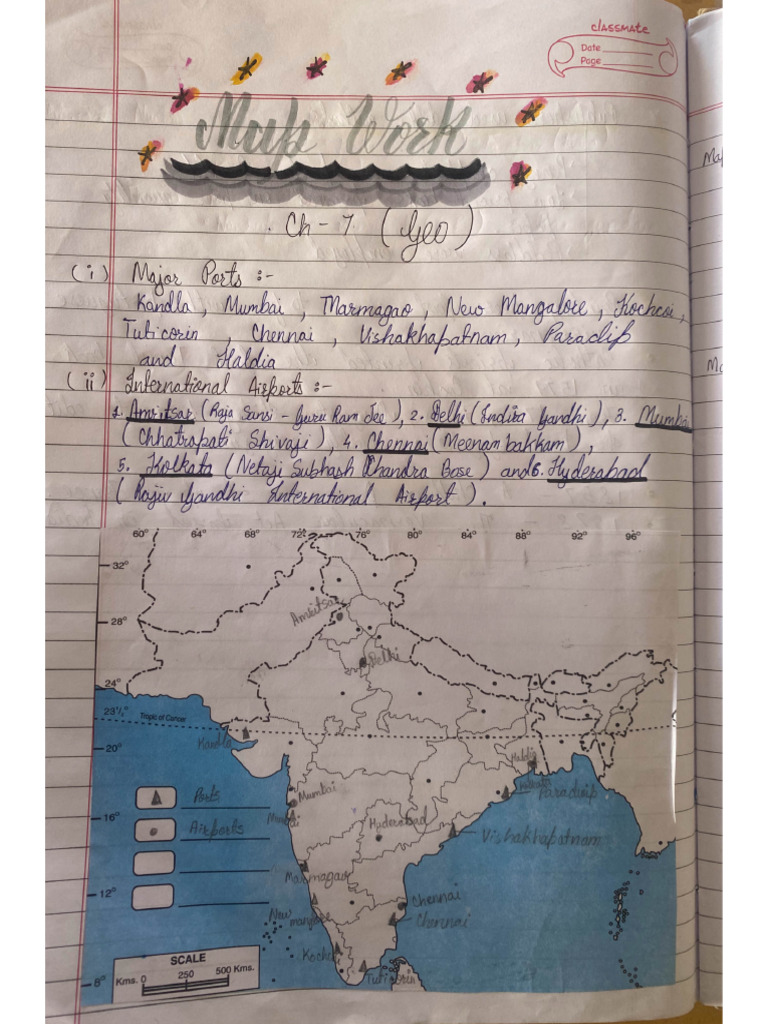 classmate
Date
Page
Map Work
Ch - 7 (Geo)
(i) Major Ports :-
Kandla, Mumbai, Marmagao, New Mangalore, Kochci,
Tuticorin, Chennai, Vishakhapatnam, Paradip
and Haldia
(ii) International Airports :-
1. Amritsar (Raja Sansi - Guru Ram Jee), 2. Delhi (Indira Gandhi), 3. Mumbai
(Chhatrapati Shivaji), 4. Chennai (Meenambakkam),
5. Kolkata (Netaji Subhash Chandra Bose) and 6. Hyderabad
(Rajiv Gandhi International Airport).
60° 64° 68° 72° 76° 80° 84° 88° 92° 96°
32°
Amritsar
28°
Delhi
24°
23½°
Tropic of Cancer
Kandla
20°
Haldia
Kolkata
Paradip
Ports
Mumbai
Mumbai
16°
Airports
Hyderabad
Vishakhapatnam
Marmagao
12°
Chennai
New
Mangalore
Chennai
Kochci
SCALE
Kms. 0 250 500 Kms.
8°
Tuticorin